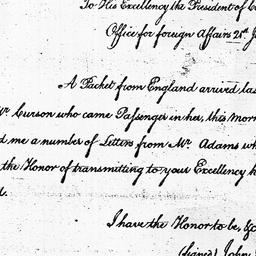 To His Excellency the President of C
Office for foreign Affairs 21st J
A Packet from England arrived las
Mr. Curson who came Passenger in her, this morn
d me a number of Letters from Mr. Adams wh
the Honor of transmitting to your Excellency h
d.
I have the Honor to be, &c
(signed) John